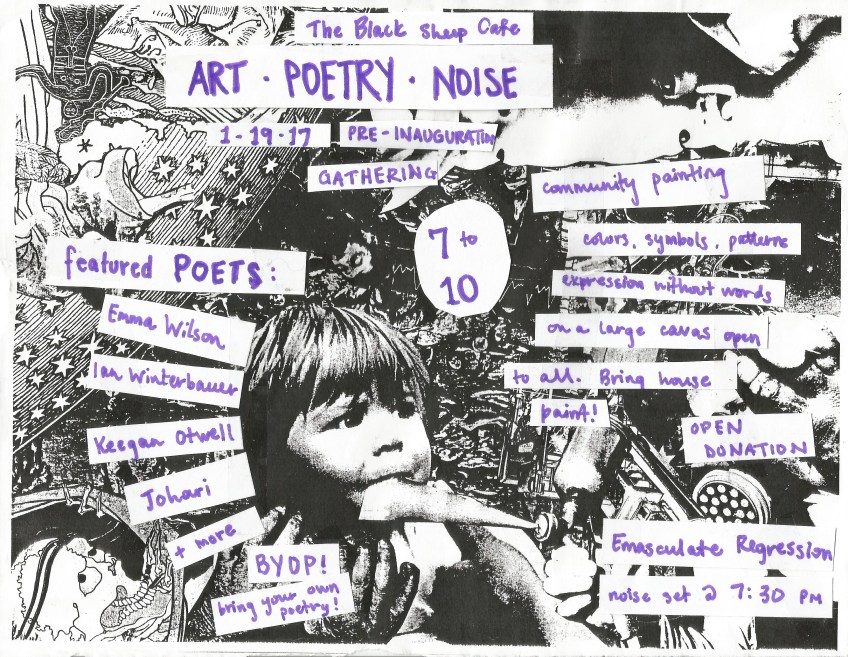 The Black Sheep Cafe
ART · POETRY · NOISE
1-19-17 PRE-INAUGURATION
GATHERING
7 to
10
featured POETS:
Emma Wilson
Ian Winterbauer
Keegan Otwell
Johari
+ more
BYOP!
bring your own
poetry!
community painting
colors, symbols, patterns
expression without words
on a large cavas open
to all. Bring house
paint!
OPEN
DONATION
Emasculate Regression
noise set @ 7:30 PM